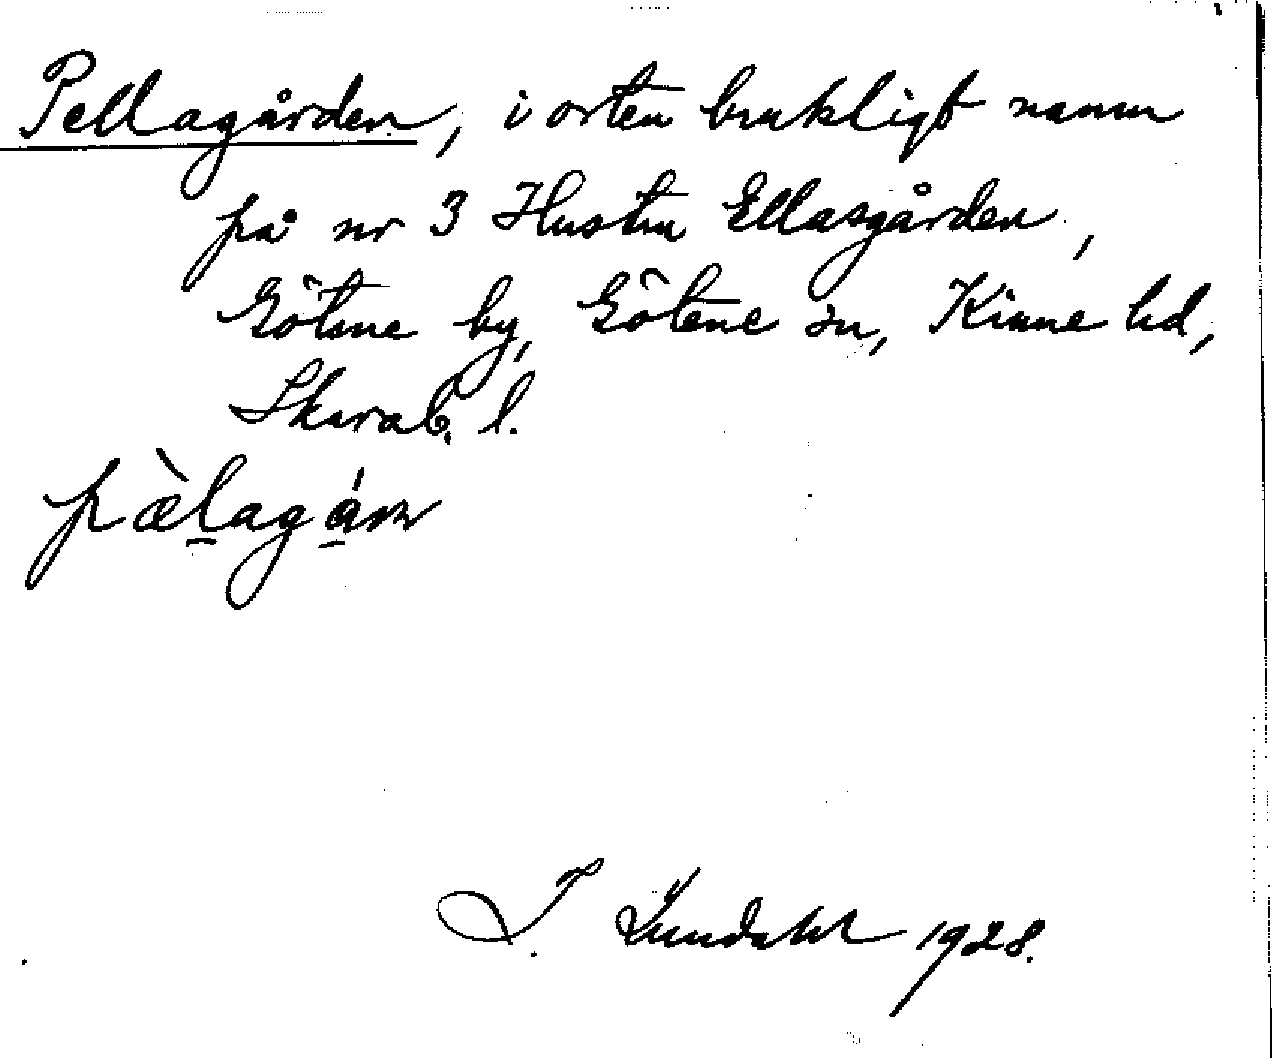 Pellagården, i orten brukligt namn
på nr 3 Hustru Ellasgården,
Götene by, Götene sn, Kinne hd,
Skarab. l.
pæ̀lagán
I. Lundahl 1928.